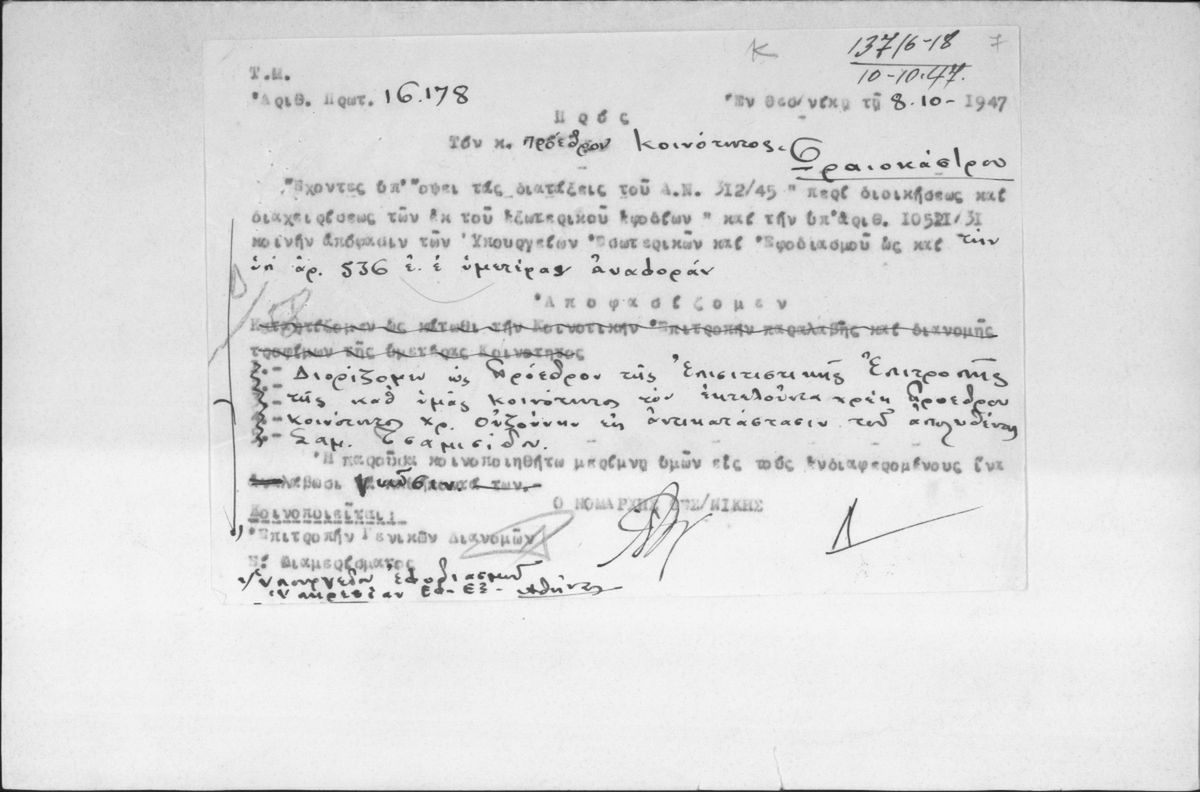 Κ 137/6-18 7
10-10-47.
Τ.Μ.
Ἀριθ. Πρωτ. 16.178 Ἐν Θεσ/νίκῃ τῇ 8-10-1947
Πρός
Τόν κ. πρόεδρον Κοινότητος
Ὡραιοκάστρου
Ἔχοντες ὑπ' ὄψει τάς διατάξεις τοῦ Α.Ν. 312/45 " περί διοικήσεως καί
διαχειρίσεως τῶν ἐκ τοῦ ἐξωτερικοῦ ἐφοδίων " καί τήν ὑπ' ἀριθ. 10521/31
κοινήν ἀπόφασιν τῶν Ὑπουργείων Ἐσωτερικῶν καί Ἐφοδιασμοῦ ὡς καί τήν
ὑπ ἀρ. 536 ἐ. ἔ ὑμετέραν ἀναφοράν
Ἀποφασίζομεν
Καταρτίζομεν ὡς κάτωθι τήν Κοινοτικήν Ἐπιτροπήν παραλαβῆς καί διανομῆς
τροφίμων τῆς ὑμετέρας Κοινότητος
Διορίζομεν ὡς Πρόεδρον τῆς Ἐπισιτιστικῆς Ἐπιτροπῆς
τῆς καθ ὑμᾶς κοινότητος τόν ἐκτελοῦντα χρέη Προέδρου
κοινότητος κ. Οὐζούνην εἰς ἀντικατάστασιν τοῦ ἀπολυθέντος
Σαμ. Τσαμισίδου.
Ἡ παροῦσα κοινοποιηθήτω μερίμνῃ ὑμῶν εἰς τούς ἐνδιαφερομένους ἵνα
λάβωσι γνῶσιν. των.
Ο ΝΟΜΑΡΧΗΣ ΘΕΣ/ΝΙΚΗΣ
Κοινοποιεῖται:
Ἐπιτροπήν Γενικῶν Διανομῶν
Ε' Διαμερίσματος
Ὑπουργεῖον Ἐφοδιασμοῦ
Ὑπηρεσίαν Ἐφ. Ἐξ. Ἀθήνας